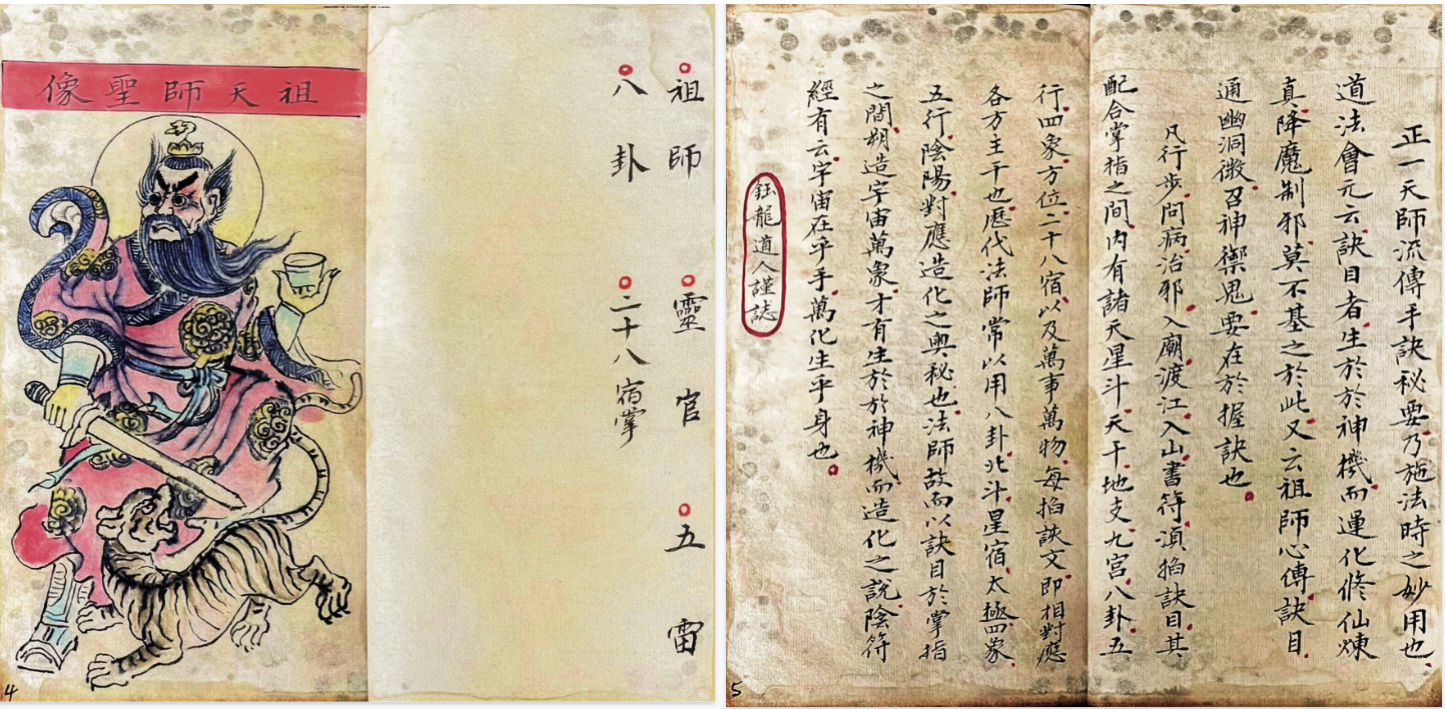 祖天師聖像
祖師 靈官 五雷
八卦 二十八宿掌
4
正一天師流傳手訣秘要乃施法時之妙用也
道法會元云訣目者生於於神機而運化修仙煉
真降魔制邪莫不基之於此又云祖師心傳訣目
通幽洞微召神禦鬼要在於握訣也
凡行步問病治邪入廟渡江入山書符湏掐訣目其
配合掌指之間内有諸天星斗天干地支九宮八卦五
行四象方位二十八宿以及萬事萬物每掐訣文即相對應
各方主干也歷代法師常以用八卦北斗星宿太極四象
五行陰陽對應造化之奧秘也法師故而以訣目於掌指
之間朔造宇宙萬象才有生於於神機而造化之說陰符
經有云宇宙在乎手萬化生乎身也
鈺龍道人謹誌
5